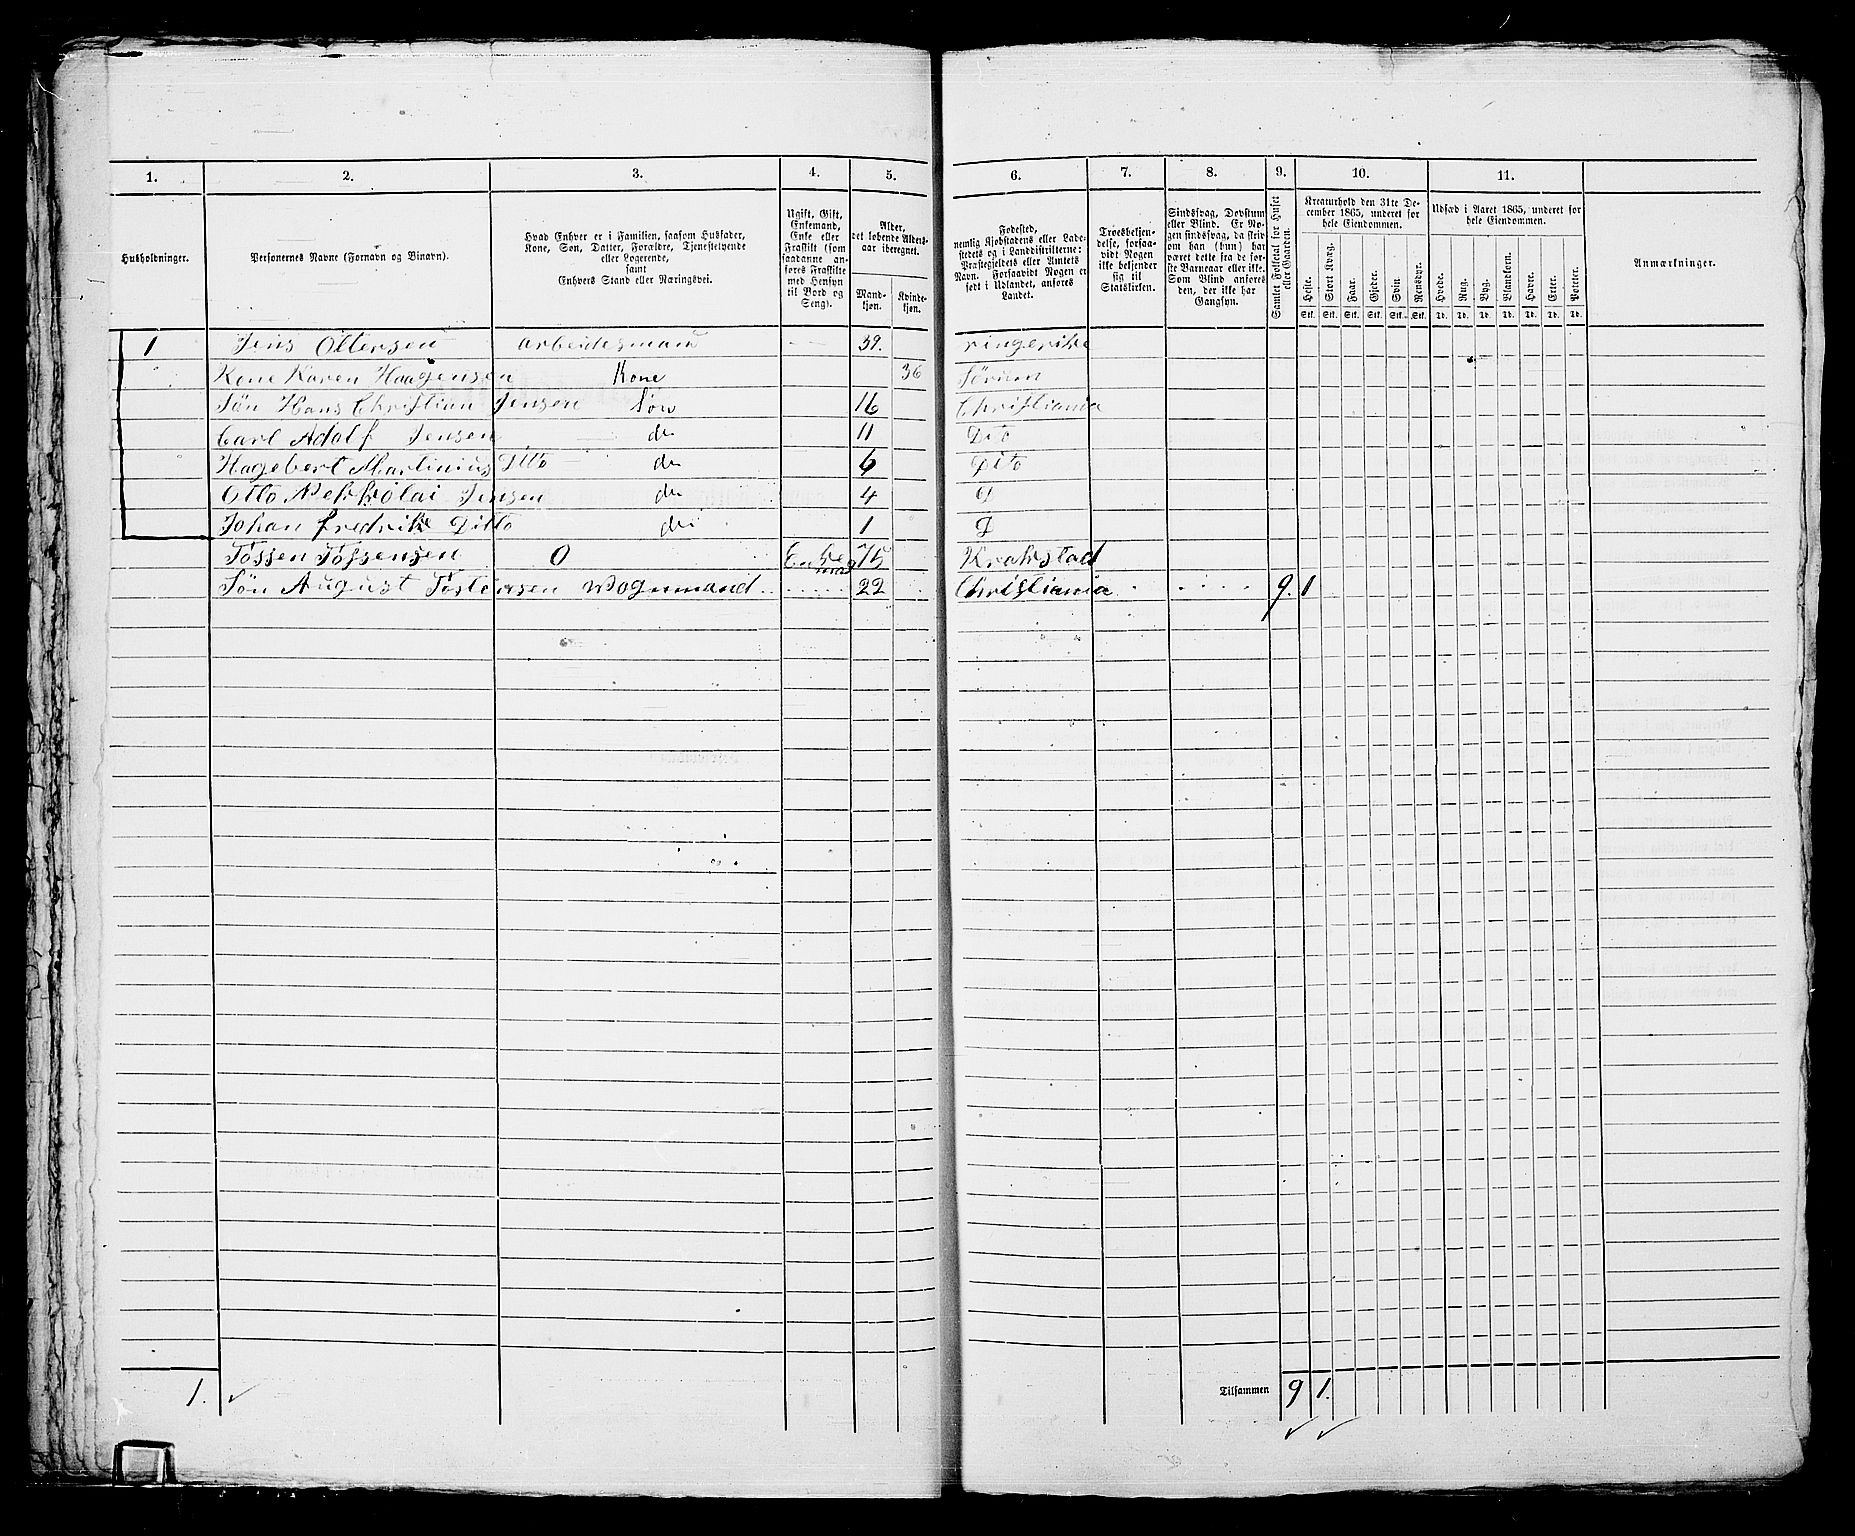 1. 2. 3. 4. 5. 6. 7. 8. 9. 10. 11.
Husholdninger.
Personernes Navne (Fornavn og Binavn).
Hvad Enhver er i Familien, saasom Husfader,
Kone, Søn, Datter, Forældre, Tjenestetyende
eller Logerende,
samt
Enhvers Stand eller Næringsvei.
Ugift, Gift,
Enkemand,
Enke eller
Fraskilt (som
saadanne an-
føres Fraskilte
med Hensyn
til Bord og
Seng).
Alder,
det løbende Alders-
aar iberegnet.
Mand-
kjøn.
Kvinde-
kjøn.
Fødested,
nemlig Kjøbstadens eller Lade-
stedets og i Landdistrikterne:
Præstegjeldets eller Amtets
Navn. Forsaavidt Nogen er
født i Udlandet, anføres
Landet.
Troesbekjen-
delse, forsaa-
vidt Nogen
ikke bekjender
sig til
Statskirken.
Sindssvag, Døvstum
eller Blind. Er No-
gen sindssvag, da skriv
om han (hun) har
været dette fra de før-
ste Barneaar eller ikke.
Som Blind anføres
den, der ikke har
Gangsyn.
Samlet Folketal for Huset
eller Gaarden.
Kreaturhold den 31te De-
cember 1865, underet for
hele Eiendommen.
Heste. Stort Kvæg. Faar. Gjeder. Svin. Rensdyr.
Stk. Stk. Stk. Stk. Stk. Stk.
Udsæd i Aaret 1865, underet for
hele Eiendommen.
Hvede. Rug. Byg. Blankorn. Havre. Erter. Poteter.
Td. Td. Td. Td. Td. Td. Td.
Anmærkninger.
1 Jens Ottersen arbeidesmand 39. ringerike
Kone Karen Haagensen Kone 36 Sørum
Søn Hans Christian Jensen Søn 16 Christiania
Carl Adolf Jensen do 11 Dito
Hagebert Martinius Ditto do 6 Dito
Otto Jensen do 4 D
Johan fredrik Ditto do 1 D
0 Enke mand 75 Krakstad
Søn August Wognmand 22 Christiania 9. 1
1. Tilsammen 9 1.